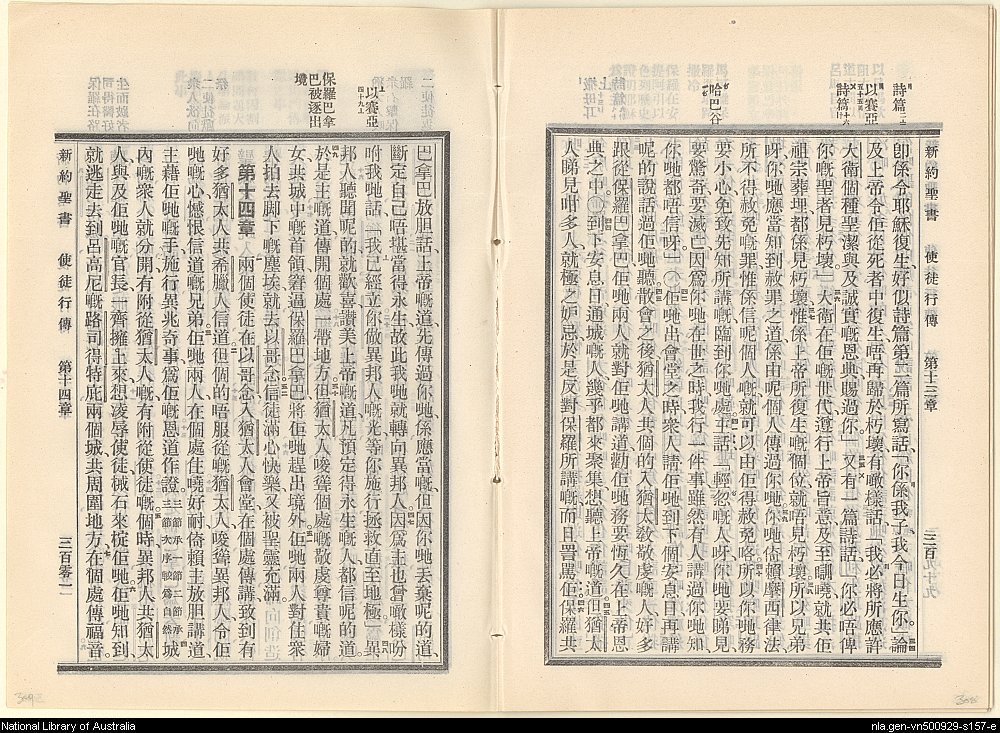 新約聖書 使徒行傳 第十三章
詩篇二
以賽亞五十五
詩篇十六
哈巴谷一
卽係令耶穌復生好似詩篇第二篇所寫話「你係我子我今日生你」論
及上帝令佢從死者中復生唔再歸於朽壞有噉樣話「我必將所應許
大衛個種聖潔與及誠實嘅恩典賜過你」又有一篇詩話「你必唔俾
你嘅聖者見朽壞」大衛在佢嘅世代遵行上帝旨意及至瞓曉就共佢
祖宗葬埋都係見朽壞惟係上帝所復生嘅個位就唔見朽壞所以兄弟
呀你哋應當知到赦罪之道係由呢個人傳過你哋你哋倚賴摩西律法
所不得赦免嘅罪惟係信呢個人嘅就可以由佢得赦免咯所以你哋務
要小心免致先知所講嘅臨到你哋處卽話「輕忽嘅人呀你哋要睇見
要驚奇要滅亡因爲你哋在世之時我行一件事雖然有人講過你哋知
你哋都唔信呀」○佢哋出會堂之時衆人請佢哋到下個安息日再講
呢的說話過佢哋聽散會之後猶太人共個的入猶太敎敬虔嘅人好多
跟從保羅巴拿巴佢哋兩人就對佢哋講道勸佢哋務要恆久在上帝恩
典之中○到下安息日通城嘅人幾乎都來聚集想聽上帝嘅道但猶太
人睇見咁多人就極之妒忌於是反對保羅所講嘅而且詈罵佢保羅共
以賽亞四十九
保羅巴拿巴被逐出境
巴拿巴放胆話上帝嘅道先傳過你哋係應當嘅但因你哋丟棄呢的道
斷定自己唔堪當得永生故此我哋就轉向異邦人因爲主也曾噉樣吩
咐我哋話「我已經立你做異邦人嘅光等你施行拯救直至地極」異
邦人聽聞呢的就歡喜讚美上帝嘅道凡預定得永生嘅人都信呢的道
於是主嘅道傳開個處一帶地方但猶太人唆聳個處嘅敬虔尊貴嘅婦
女共城中嘅首領窘逼保羅巴拿巴將佢哋趕出境外佢哋兩人對住衆
人拍去脚下嘅塵埃就去以哥念信徒滿心快樂又被聖靈充滿
第十四章 兩個使徒在以哥念入猶太人會堂在個處傳講致到有
好多猶太人共希臘人信道但個的唔服從嘅猶太人唆聳異邦人令佢
哋嘅心憾恨信道嘅兄弟佢哋兩人在個處住曉好耐倚賴主放胆講道
主藉佢哋嘅手施行異兆奇事爲佢嘅恩道作證三節承一節二節承四節次序較爲自然城
內嘅衆人就分開有附從猶太人嘅有附從使徒嘅個時異邦人共猶太
人與及佢哋嘅官長一齊擁上來想凌辱使徒㨢石來椗佢哋佢哋知到
就逃走去到呂高尼嘅路司得特庇兩個城共周圍地方在個處傳福音
新約聖書 使徒行傳 第十四章
National Library of Australia
nla.gen-vn500929-s157-e